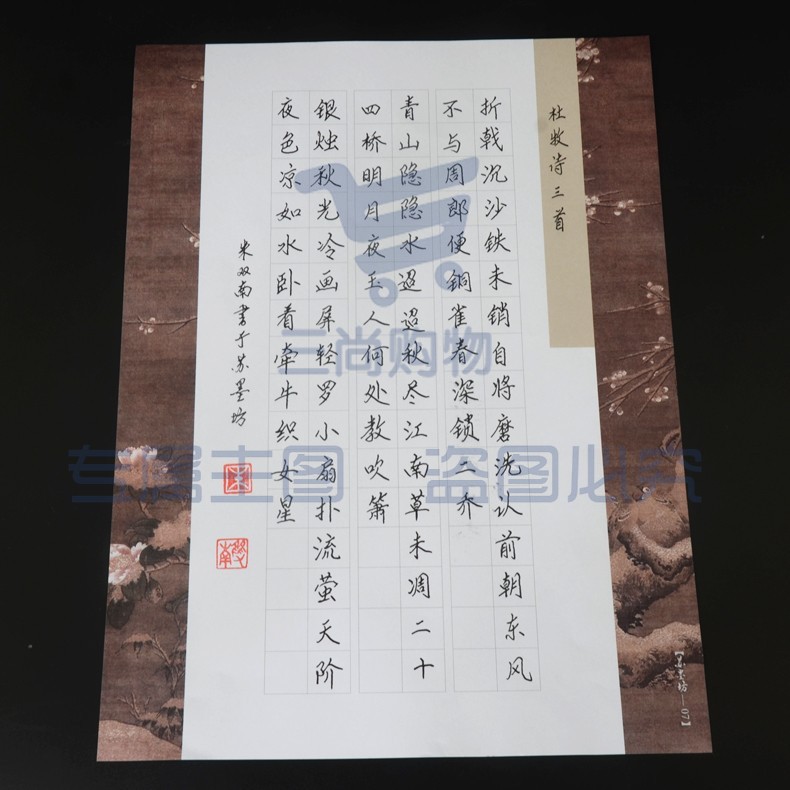 杜牧诗三首
折戟沉沙铁未销自将磨洗认前朝东风
不与周郎便铜雀春深锁二乔
青山隐隐水迢迢秋尽江南草未凋二十
四桥明月夜玉人何处教吹箫
银烛秋光冷画屏轻罗小扇扑流萤天阶
夜色凉如水卧看牵牛织女星
米双南書于苏墨坊
【苏墨坊—07】
三尚购物
专属主图 盗图必究